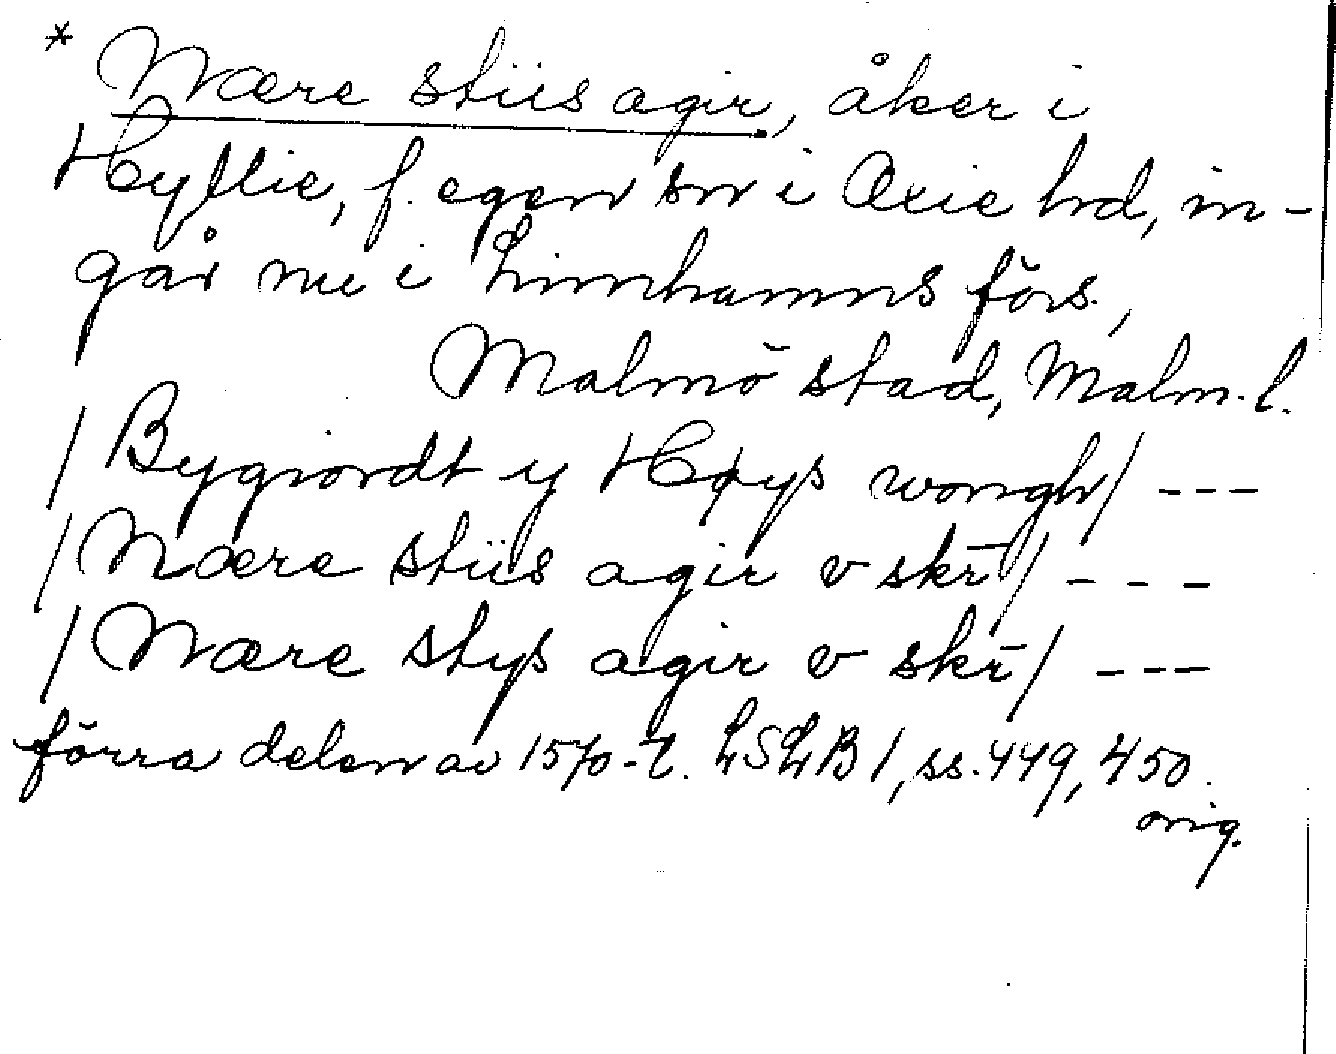 * Nære stiis agir, åker i
Hyllie, f. egen sn i Oxie hd, in-
går nu i Limhamns förs.,
Malmö stad, Malm. l.
/ Bygiordt y Høys wongh / ---
/ Nære stiis agir v skr̄ / - - -
/ Nære stys agir v skr̄ / ---
förra delen av 1570-t. LSLB 1, ss. 449, 450.
orig.